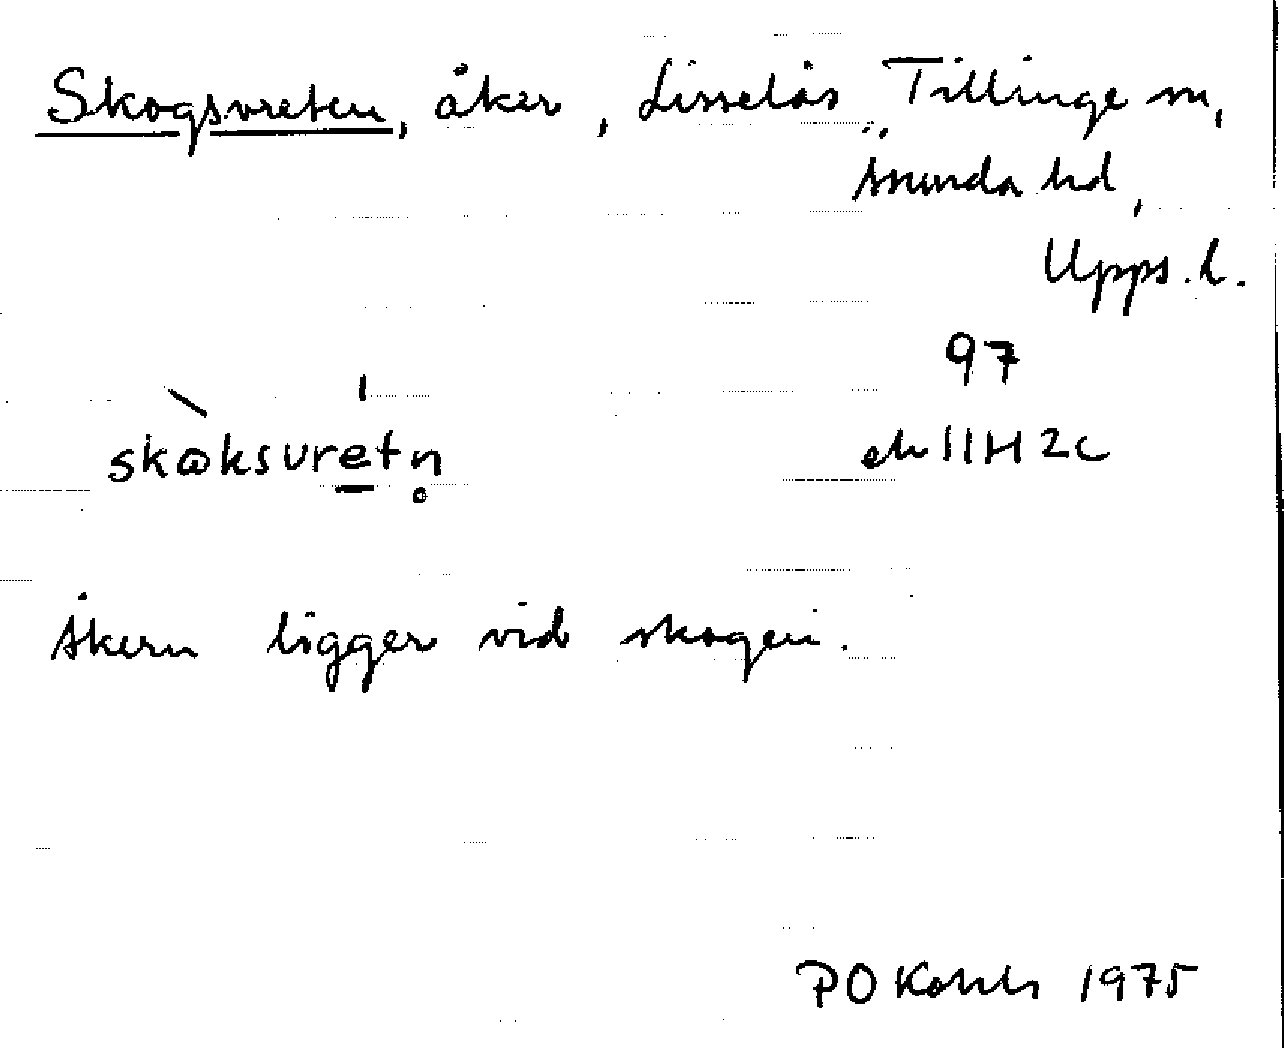 Skogsvreten, åker, Lisselås Tillinge sn,
Åsunda hd,
Upps. l.
97
skɷksvretn̥ ek 11H 2c
Åkern ligger vid skogen.
PO 1975